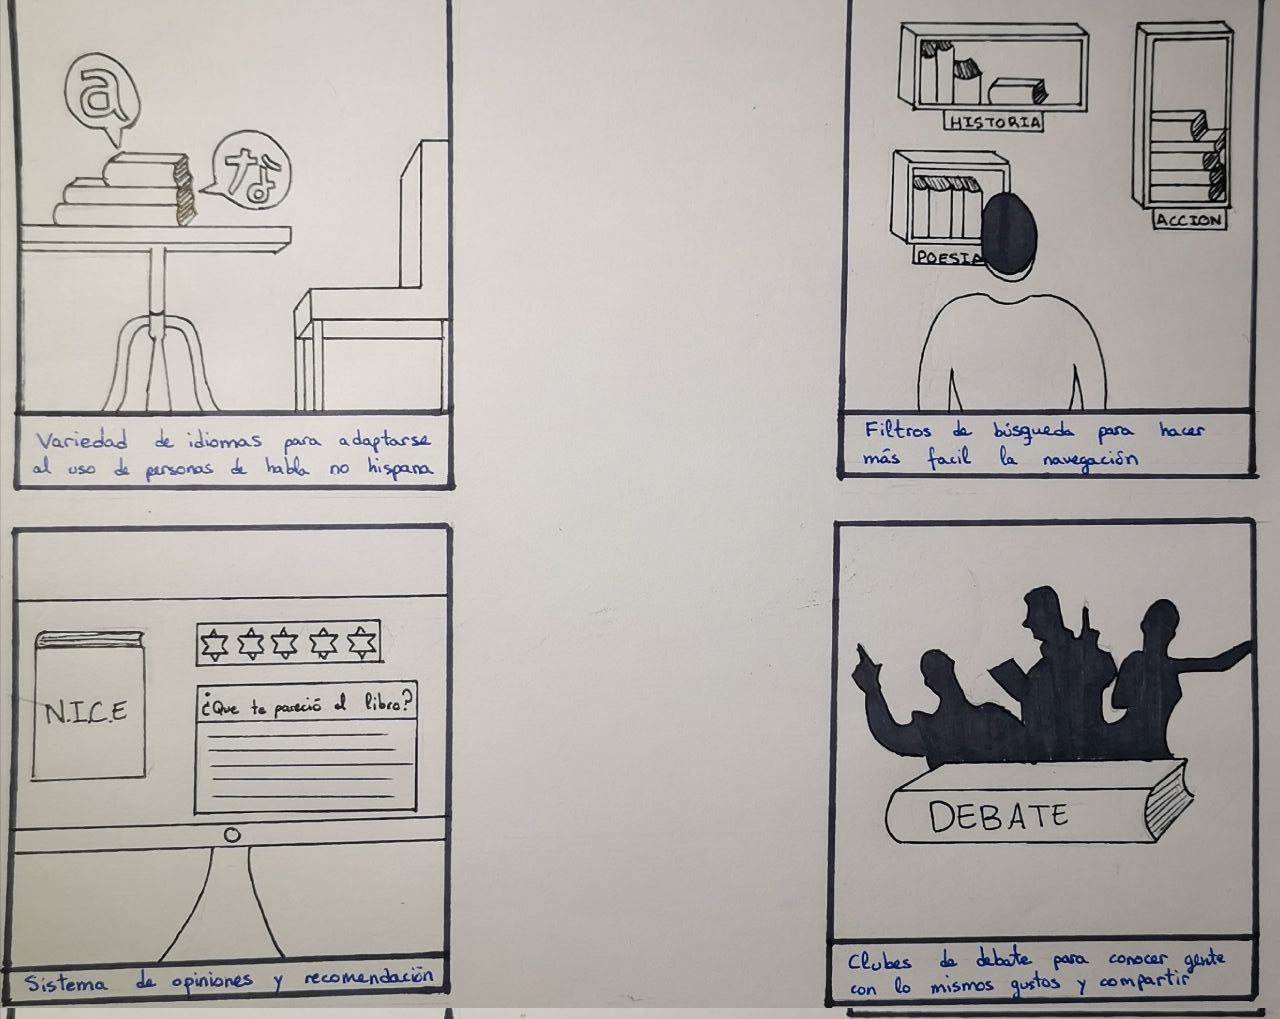 a
な
Variedad de idiomas para adaptarse
al uso de personas de habla no hispana
HISTORIA
ACCION
POESIA
Filtros de búsqueda para hacer
más facil la navegación
N.I.C.E
¿Que te pareció el libro?
Sistema de opiniones y recomendación
DEBATE
Clubes de debate para conocer gente
con lo mismos gustos y compartir